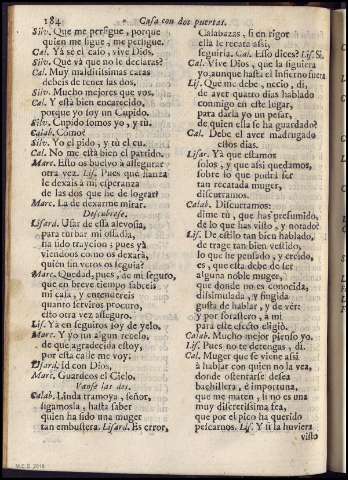 184 Casa con dos puertas.
Silv. Que me persigue, porque
quien me sigue, me persigue.
Cal. Ya sè el caso, vive Dios.
Silv. Que và que no le declaras?
Cal. Muy malditissimas caras
debeis de tener las dos.
Silv. Mucho mejores que vos.
Cal. Y está bien encarecido,
porque yo soy un Cupido.
Silv. Cupido somos yo, y tù.
Calab. Como?
Silv. Yo el pido, y tu el cu.
Cal. No me està bien el partido.
Marc. Esto os buelvo à assegurar
otra vez. Lis. Pues que fianza
le dexais à mi esperanza
de las dos que he de lograr?
Marc. La de dexarme mirar.
Descubrese.
Lisard. Usar de essa alevosia,
para turbar mi ossadia,
ha sido traycion; pues yà
viendoos como os dexarà,
quien sin veros os seguia?
Marc. Quedad, pues, de mi seguro,
que en breve tiempo sabreis
mi casa, y entendereis
quanto serviros procuro,
esto otra vez asseguro.
Lis. Yà en seguiros soy de yelo.
Marc. Y yo sin algun recelo,
de que agradecida estoy,
por esta calle me voy.
Lisard. Id con Dios.
Marc. Guardeos el Cielo.
Vanse las dos.
Calab. Linda tramoya, señor,
sigamosla, hasta saber
quien ha sido una muger
tan embustera. Lisard. Es error,
Calabazas, si en rigor
ella se recata assi,
seguirla. Cal. Esso dices? Lis. Si.
Cal. Vive Dios, que la siguiera
yo, aunque hasta el Infierno fuera.
Lis. Que me debe, necio, di,
de aver quatro dias hablado
conmigo en este lugar,
para darla yo un pesar,
de quien ella se ha guardado?
Cal. Debe el aver madrugado
essos dias.
Lisar. Yà que estamos
solos, y que assi quedamos,
sobre lo que podrà ser
tan recatada muger,
discurramos.
Calab. Discurramos:
dime tù, que has presumido,
de lo que has visto, y notado?
Lis. De estilo tan bien hablado,
de trage tan bien vestido,
lo que he pensado, y creido,
es, que esta debe de ser
alguna noble muger,
que donde no es conocida,
dissimulada, y fingida
gusta de hablar, y de vèr:
y por forastero, à mi
para este efecto eligiò.
Calab. Mucho mejor pienso yo.
Lis. Pues no te detengas, di.
Cal. Muger que se viene assi
à hablar con quien no la vea,
donde ostentarse desea
bachillera, è importuna,
que me maten, si no es una
muy discretissima fea,
que por el pico ha querido
pescarnos. Lis. Y si la huviera
visto